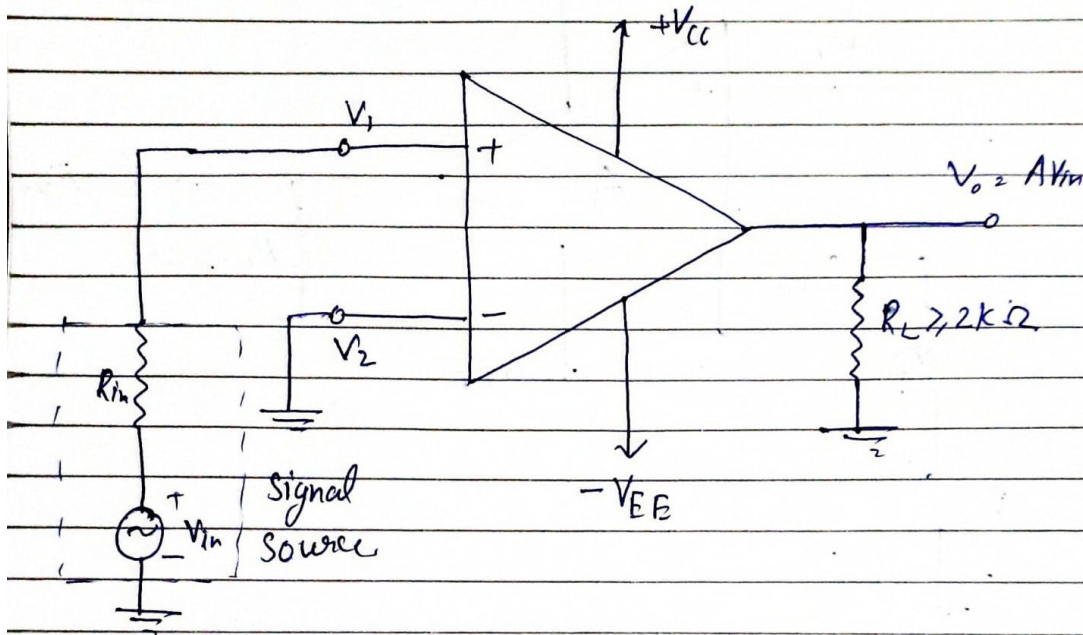 +VCC
V1
+
V0 = AVin
-
V2
RL ≥ 2KΩ
Rin
-VEE
+
Vin
-
Signal
Source